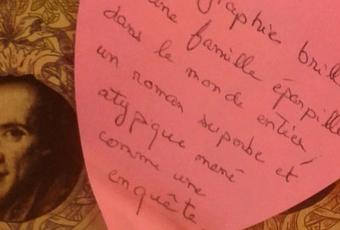 graphie brill
une famille éparpillé
dans le monde entier,
un roman superbe et
atypique mené
comme une
enquête.